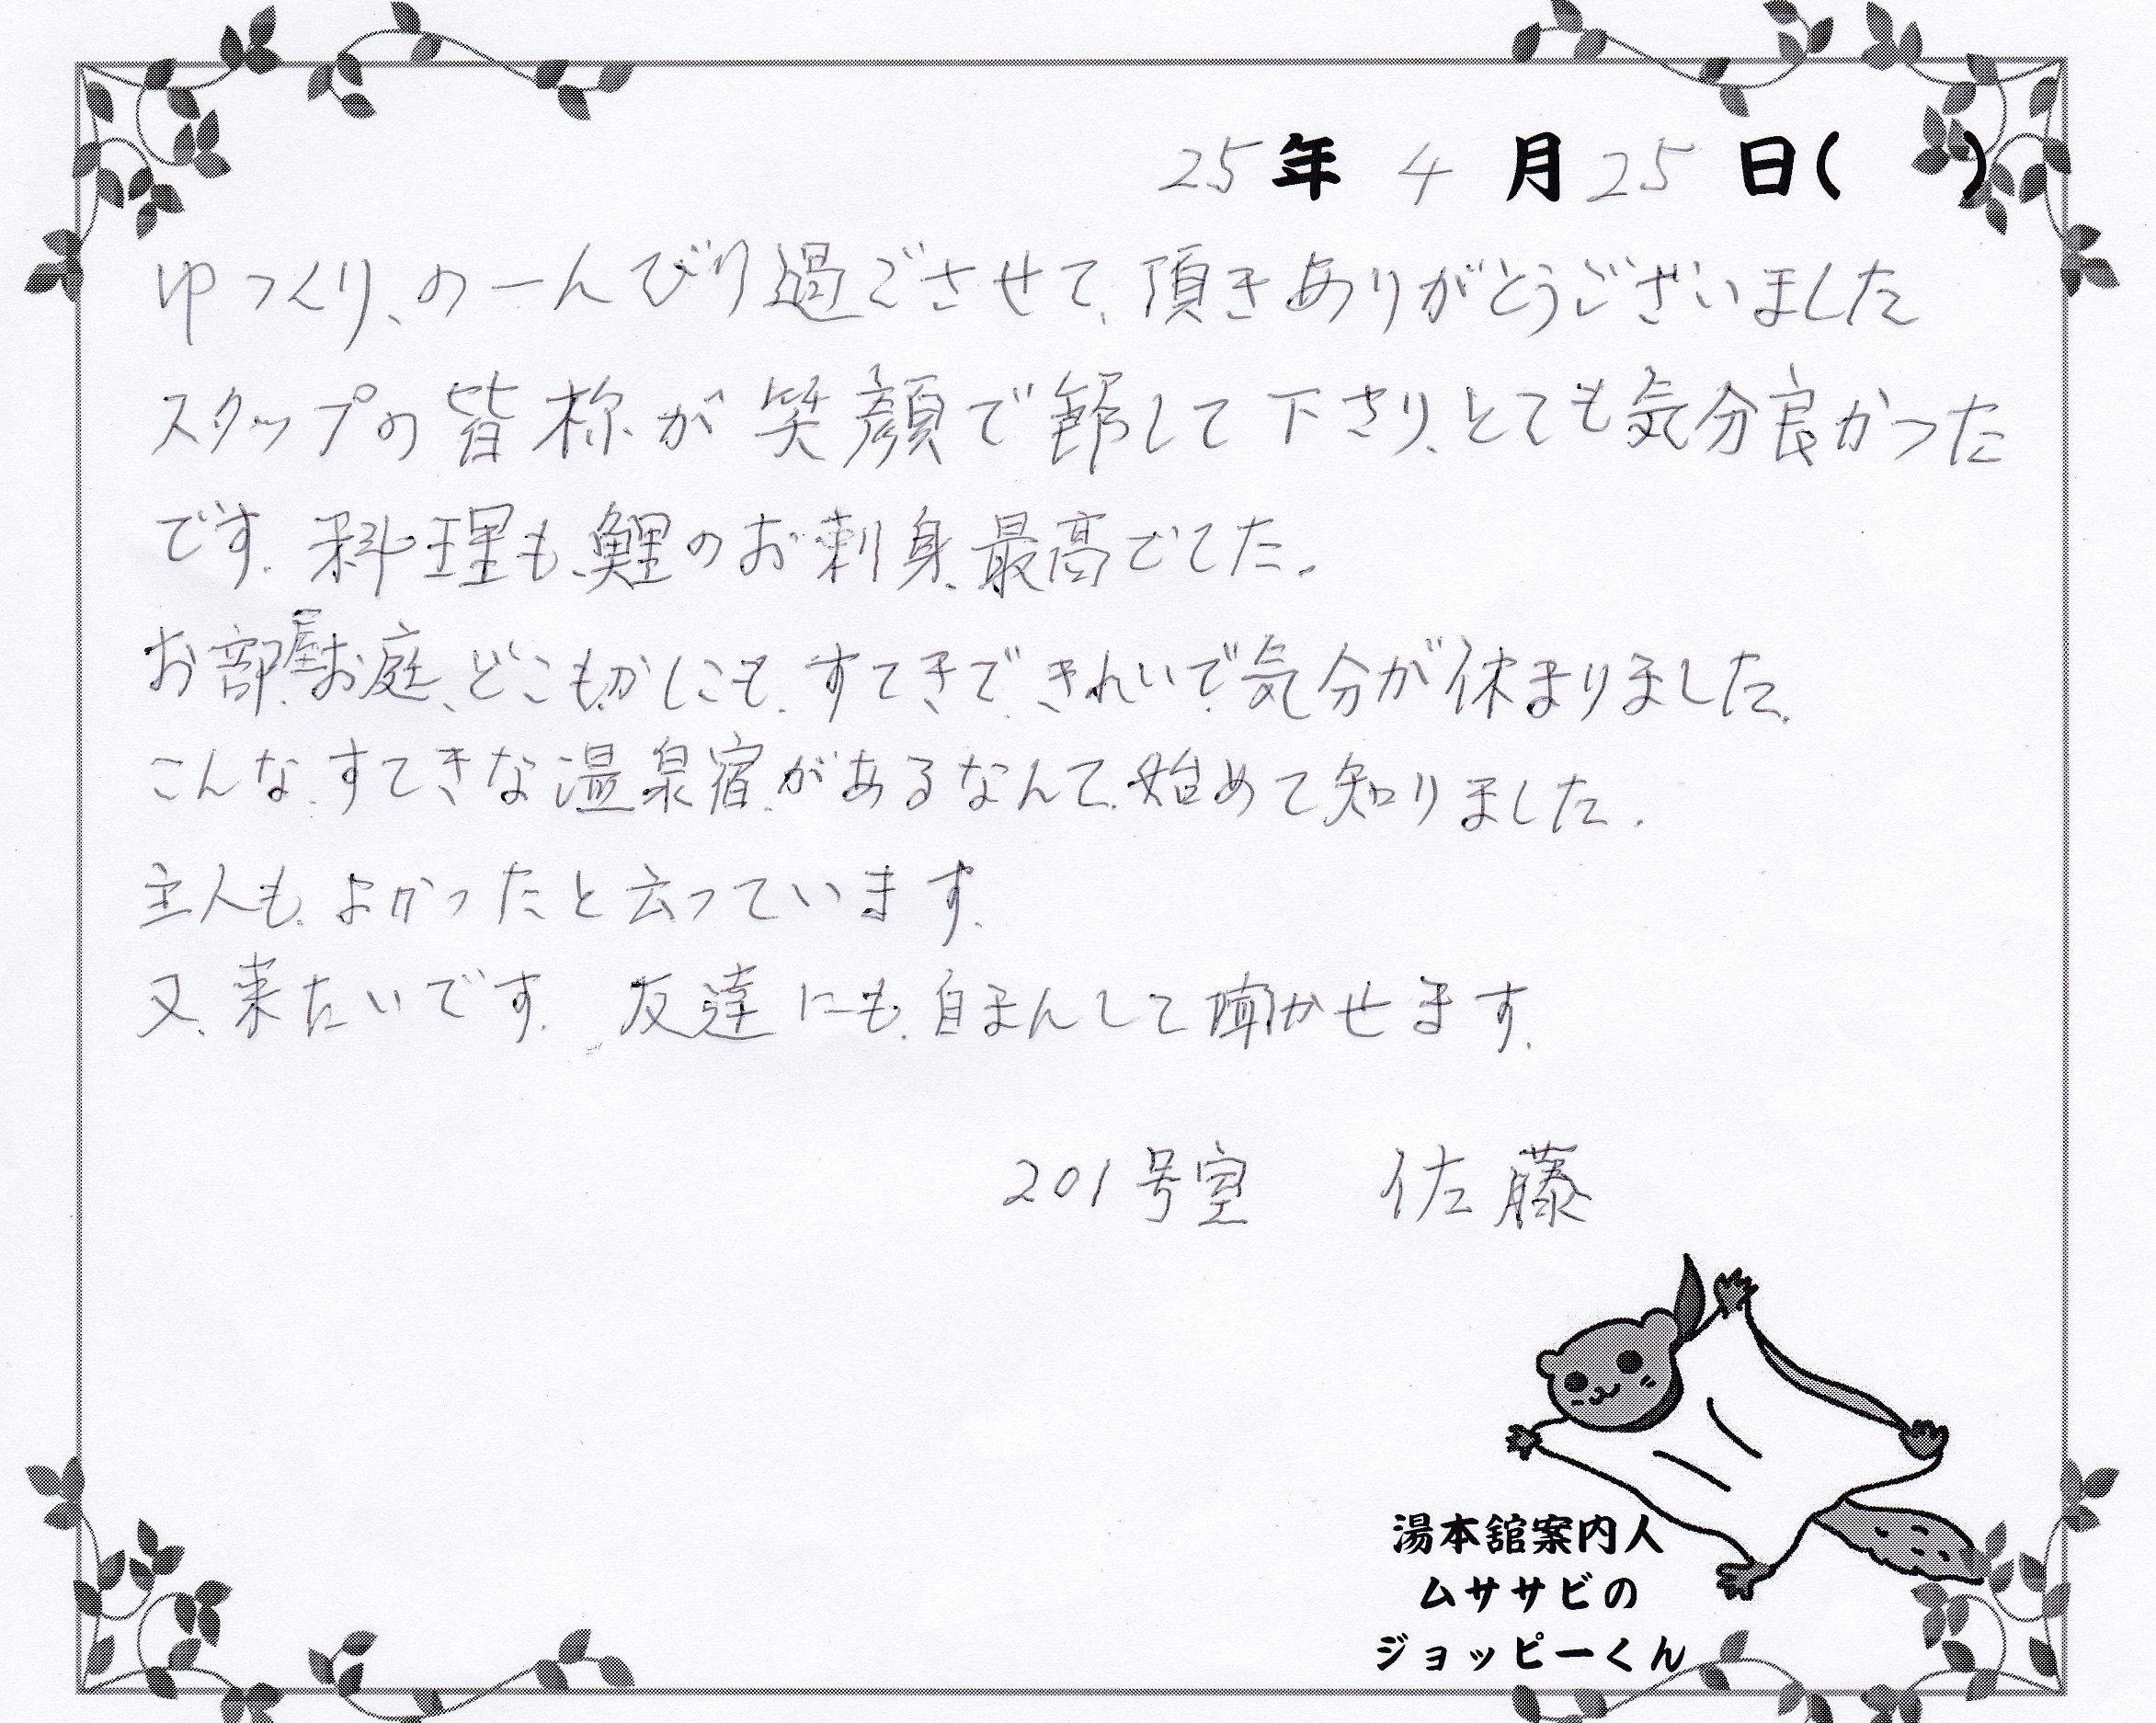 25年 4月25日( )
ゆっくり、のーんびり過ごさせて、頂きありがとうございました
スタップの皆様が笑顔で して下さり、とても気分良かった
です。料理も、鯉のお刺身、最高でした。
お部屋、お庭、どこもかしこも、すてきで、きれいで、気分が休まりました。
こんな、すてきな温泉宿があるなんて、始めて知りました。
主人も、よかったと云っています。
又、来たいです。 友達にも、自まんして聞かせます。
201号室 佐藤
湯本舘案内人
ムササビの
ジョッピーくん